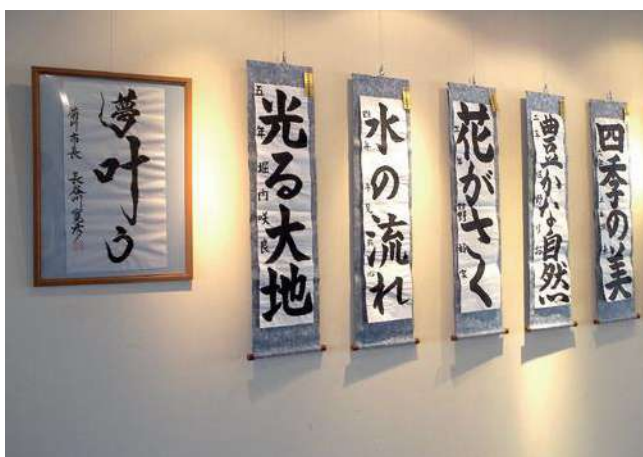 夢叶う
菊川市長 長谷川寛彦
光る大地
五年 堀内咲良
水の流れ
四年
花がさく
豊かな自然
四季の美